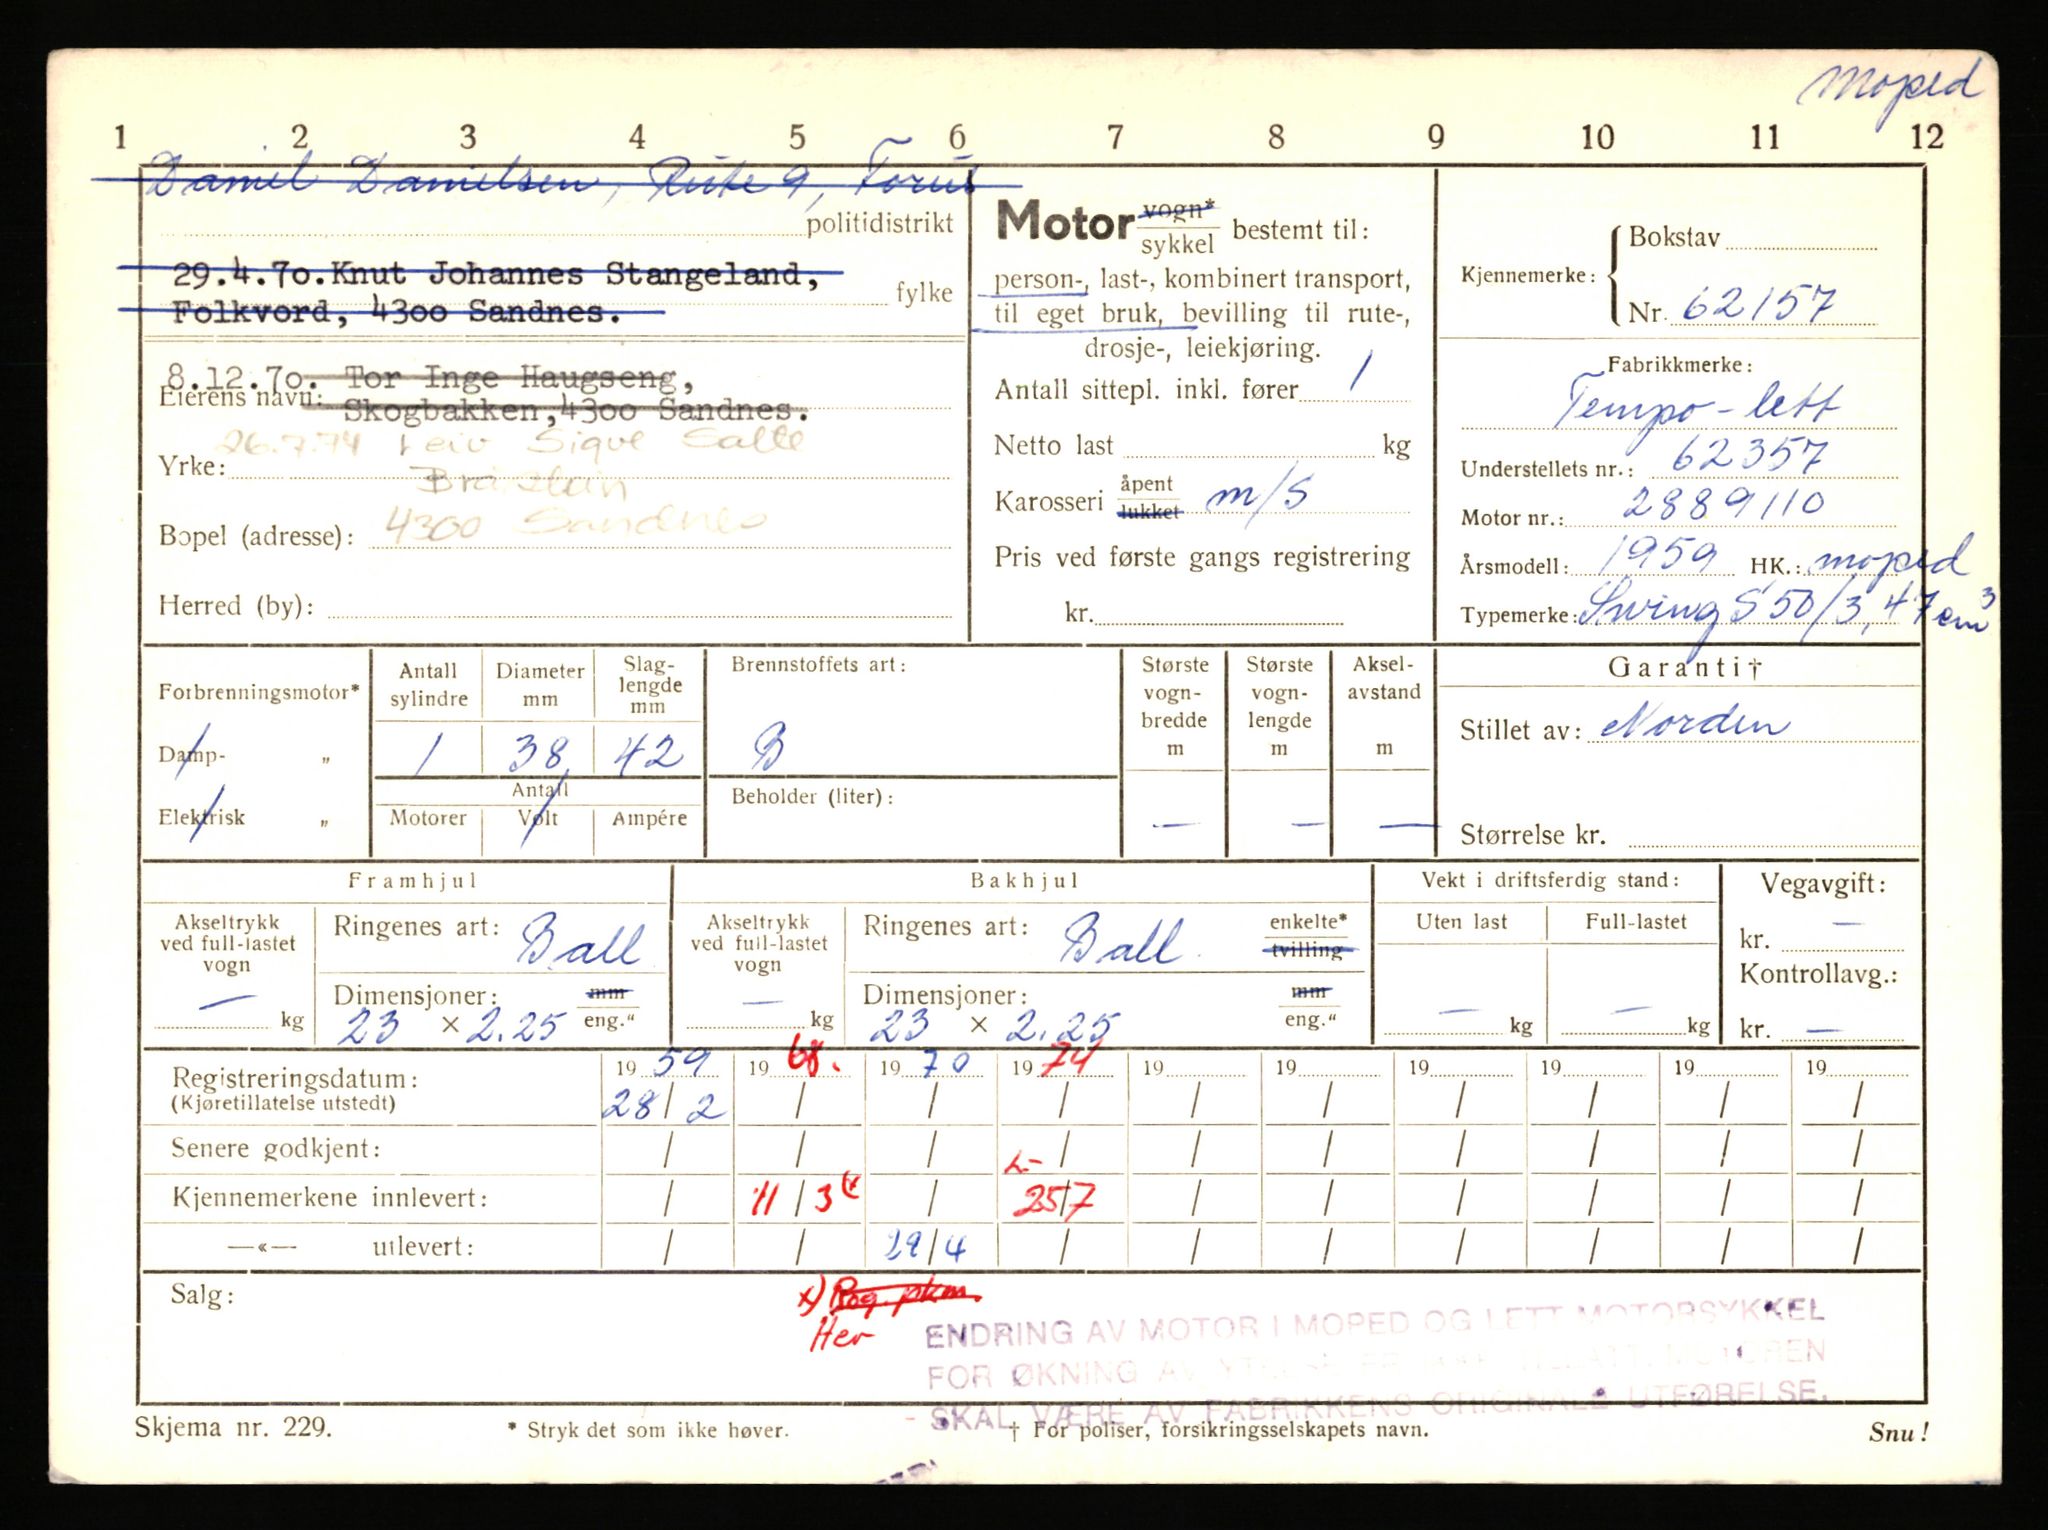 Moped
1 2 3 4 5 6 7 8 9 10 11 12
Daniel Danielsen, Rute 9, Forus
politidistrikt
29.4.70. Knut Johannes Stangeland,
fylke
Folkvord, 4300 Sandnes.
8.12.70. Tor Inge Haugseng,
Eierens navn:
Skogbakken, 4300 Sandnes.
26.7.74 Leiv Sigve Salte
Yrke:
Bråstein
4300 Sandnes
Bopel (adresse):
Herred (by):
Motor vogn*
sykkel bestemt til:
person-, last-, kombinert transport,
til eget bruk, bevilling til rute-,
drosje-, leiekjøring.
Antall sittepl. inkl. fører 1
Netto last kg
Karosseri åpent lukket m/s
Pris ved første gangs registrering
kr.
Kjennemerke: Bokstav
Nr. 62157
Fabrikkmerke:
Tempo-lett
Understellets nr.: 62357
Motor nr.: 2889110
Årsmodell: 1959 HK.: moped
Typemerke: Swing S 50/3, 47 cm3
Forbrenningsmotor*
Damp- „
Elektrisk „
Antall sylindre Diameter mm Slag-lengde mm
1 38 42
Antall
Motorer Volt Ampére
Brennstoffets art:
B
Beholder (liter):
Største vogn-bredde m
Største vogn-lengde m
Aksel-avstand m
— — —
Garanti†
Stillet av: Norden
Størrelse kr.
Framhjul
Akseltrykk ved full-lastet vogn
— kg
Ringenes art: Ball
Dimensjoner: mm
23 × 2.25 eng."
Bakhjul
Akseltrykk ved full-lastet vogn
— kg
Ringenes art: Ball enkelte* tvilling
Dimensjoner: mm
23 × 2.25 eng."
Vekt i driftsferdig stand:
Uten last Full-lastet
— kg — kg
Vegavgift:
kr. —
Kontrollavg.:
kr. —
Registreringsdatum: 19 59 19 68. 19 70 19 74 19 19 19 19 19 19
(Kjøretillatelse utstedt) 28/2 / / / / / / / / /
Senere godkjent: / / / / / / / / / /
L-
Kjennemerkene innlevert: / 11/3 x / 25/7 / / / / / /
—«— utlevert: / / 29/4 / / / / / / /
Salg:
x) Rog. pkm.
Her
ENDRING AV MOTOR I MOPED OG LETT MOTORSYKKEL
FOR ØKNING AV MOTOREN
SKAL VÆRE AV FABRIKKENS ORIGINALE UTFØRELSE.
Skjema nr. 229. * Stryk det som ikke høver. † For poliser, forsikringsselskapets navn. Snu!